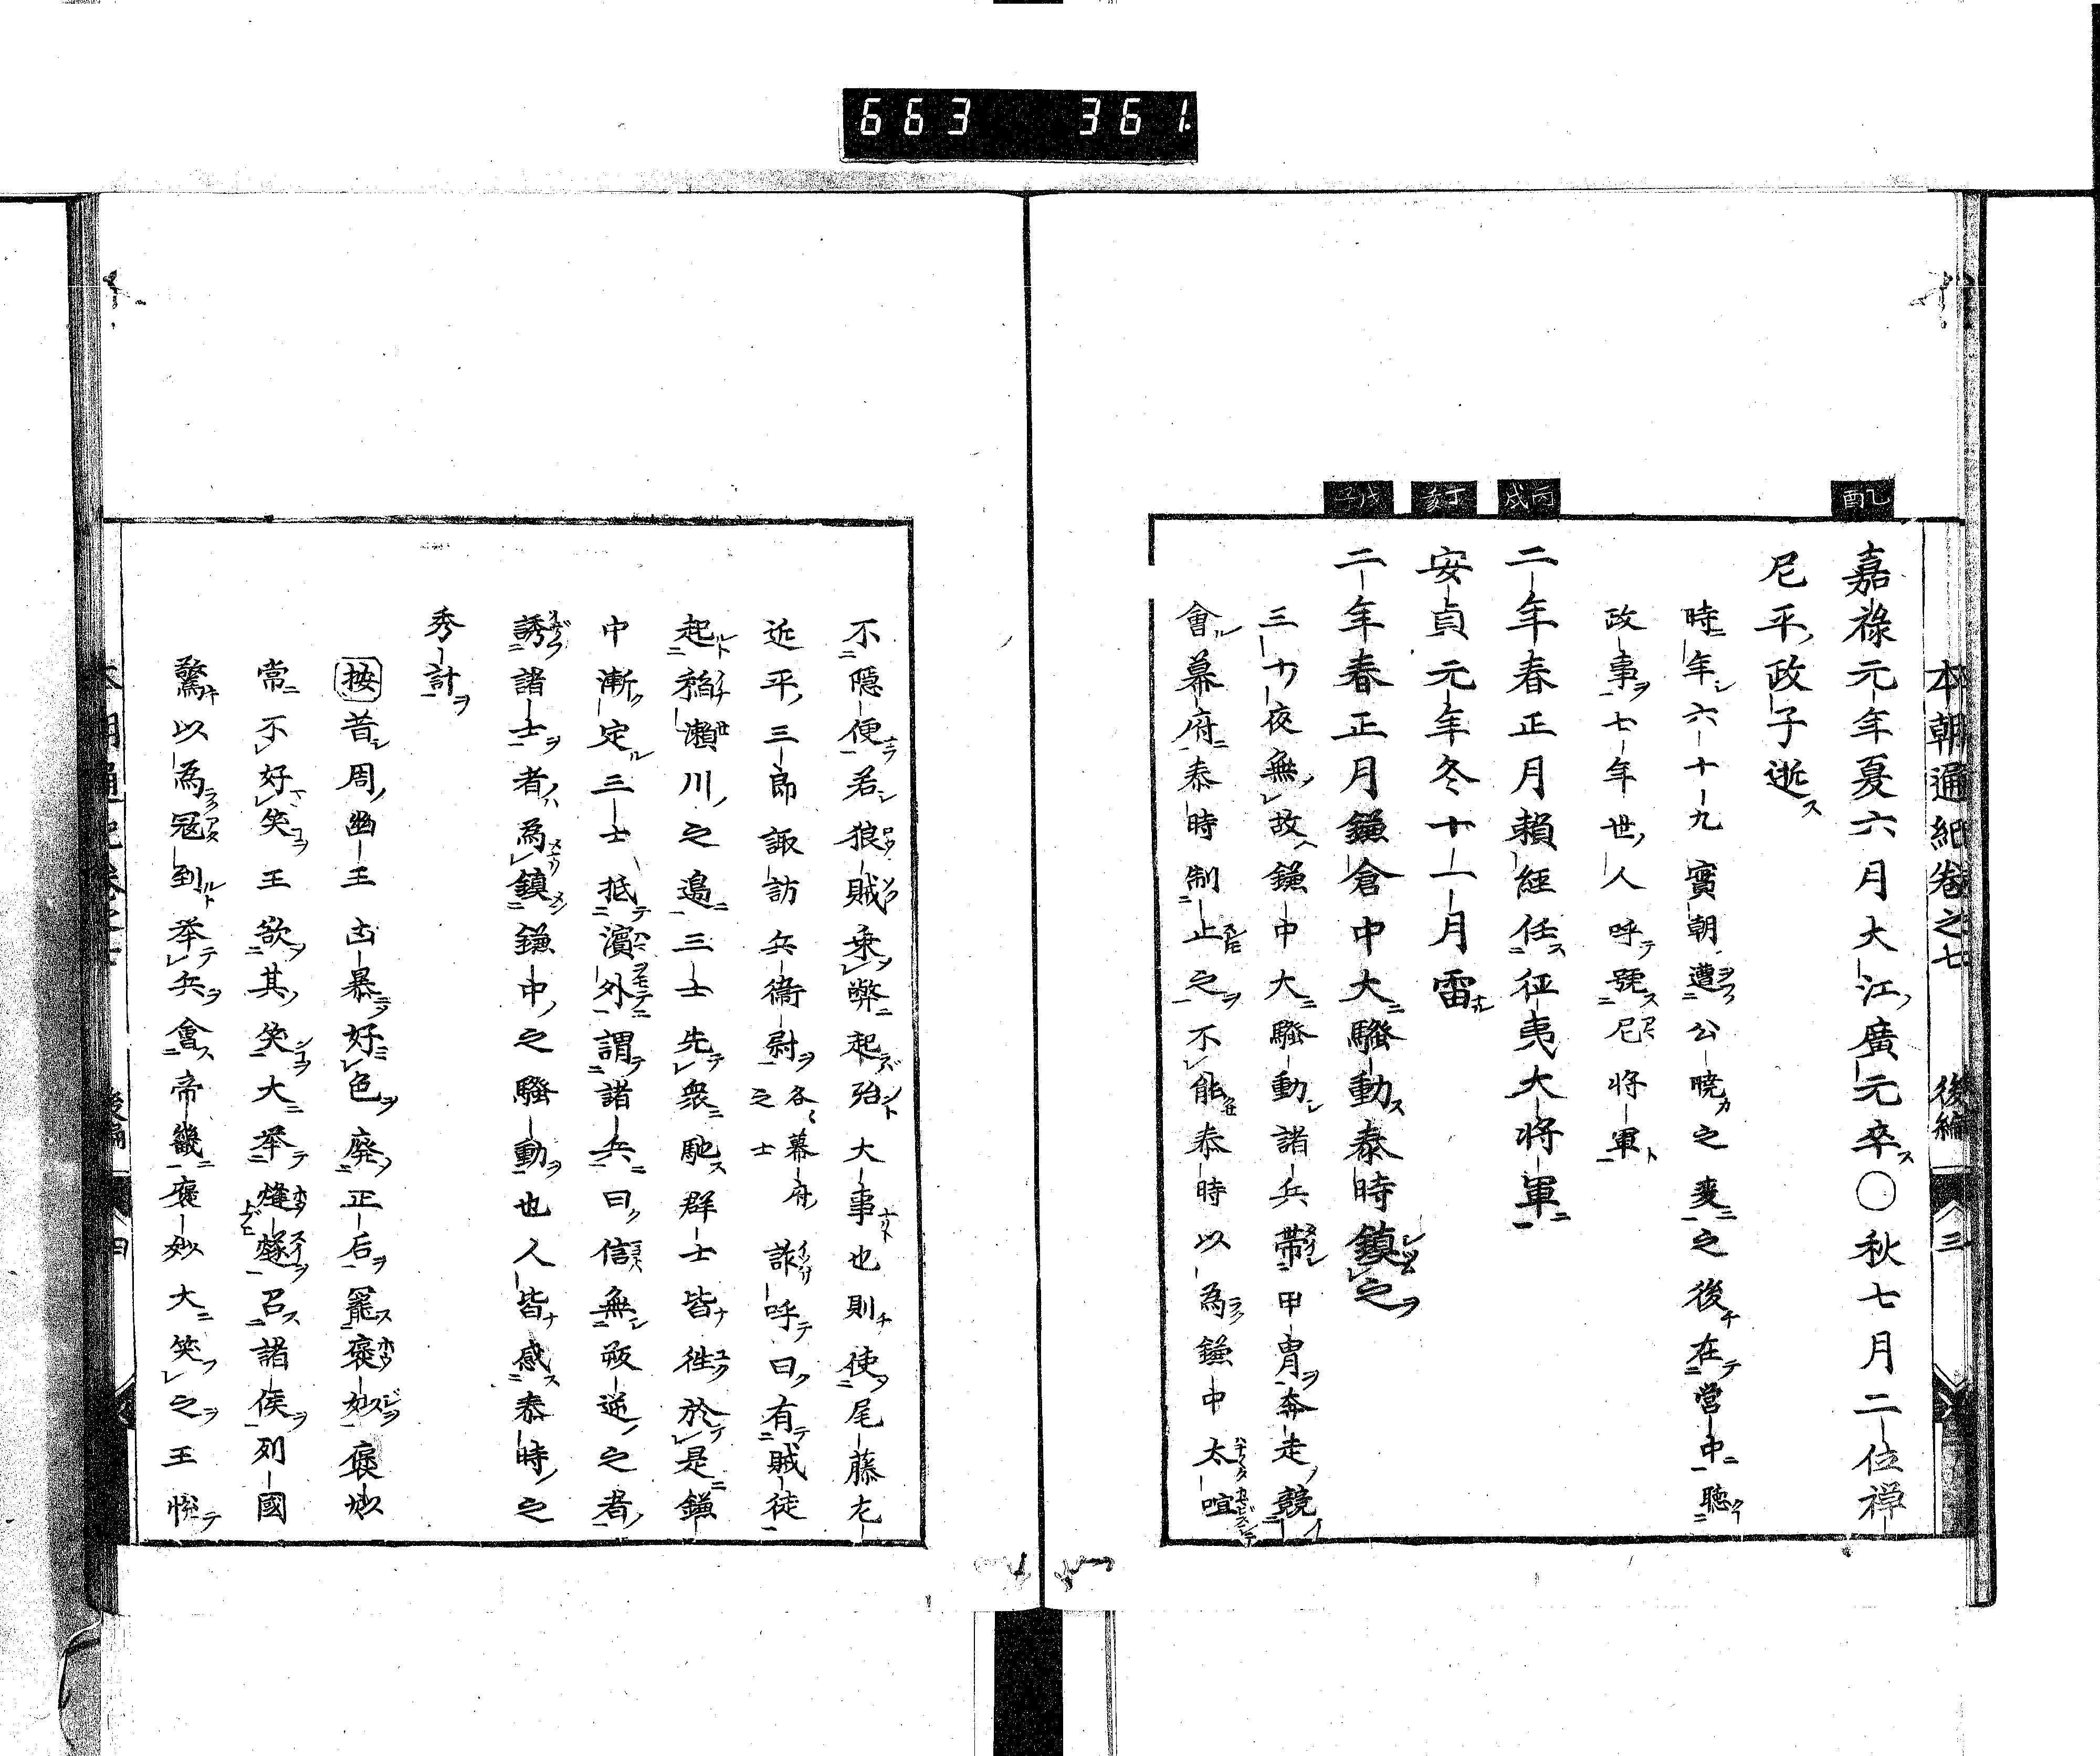 663 361.
本朝通紀卷之七 後編 三
乙酉
嘉祿元年夏六月大江廣元卒○秋七月二位禪
尼平政子逝
時年六十九實朝遭公曉之変之後在營中聽
政事七年世人呼號尼將軍
丙戌
二年春正月賴經任征夷大將軍
丁亥
安貞元年冬十一月雷
戊子
二年春正月鎌倉中大騷動泰時鎮之
三十夜無故鎌中大騷動諸兵帶甲冑奔走競
會幕府泰時制止之不能泰時以為鎌中太喧
不隱便若狼賊乗弊起殆大事也則使尾藤左
近平三郎諏訪兵衞尉各々幕府之士詐呼曰有賊徒
起稲瀬川之邉三士先衆馳群士皆徃於是鎌
中漸定三士抵濱外謂諸兵曰信無叛逆之者
誘諸士者為鎮鎌中之騷動也人皆感泰時之
秀計
按昔周幽王凶暴好色廢正后寵褒姒褒姒
常不好笑王欲其笑大举烽燧召諸侯列國
驚以為冠到举兵會帝畿褒姒大笑之王悅
本朝通紀卷之七 後編 四